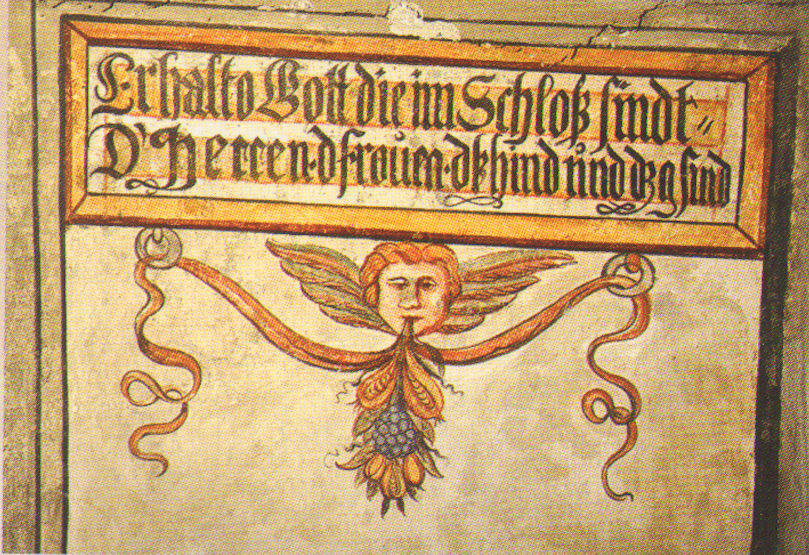 Erhalto Gott die im Schloß sindt〃
D' Herren·d frouen·d khind ůnd dz gsind